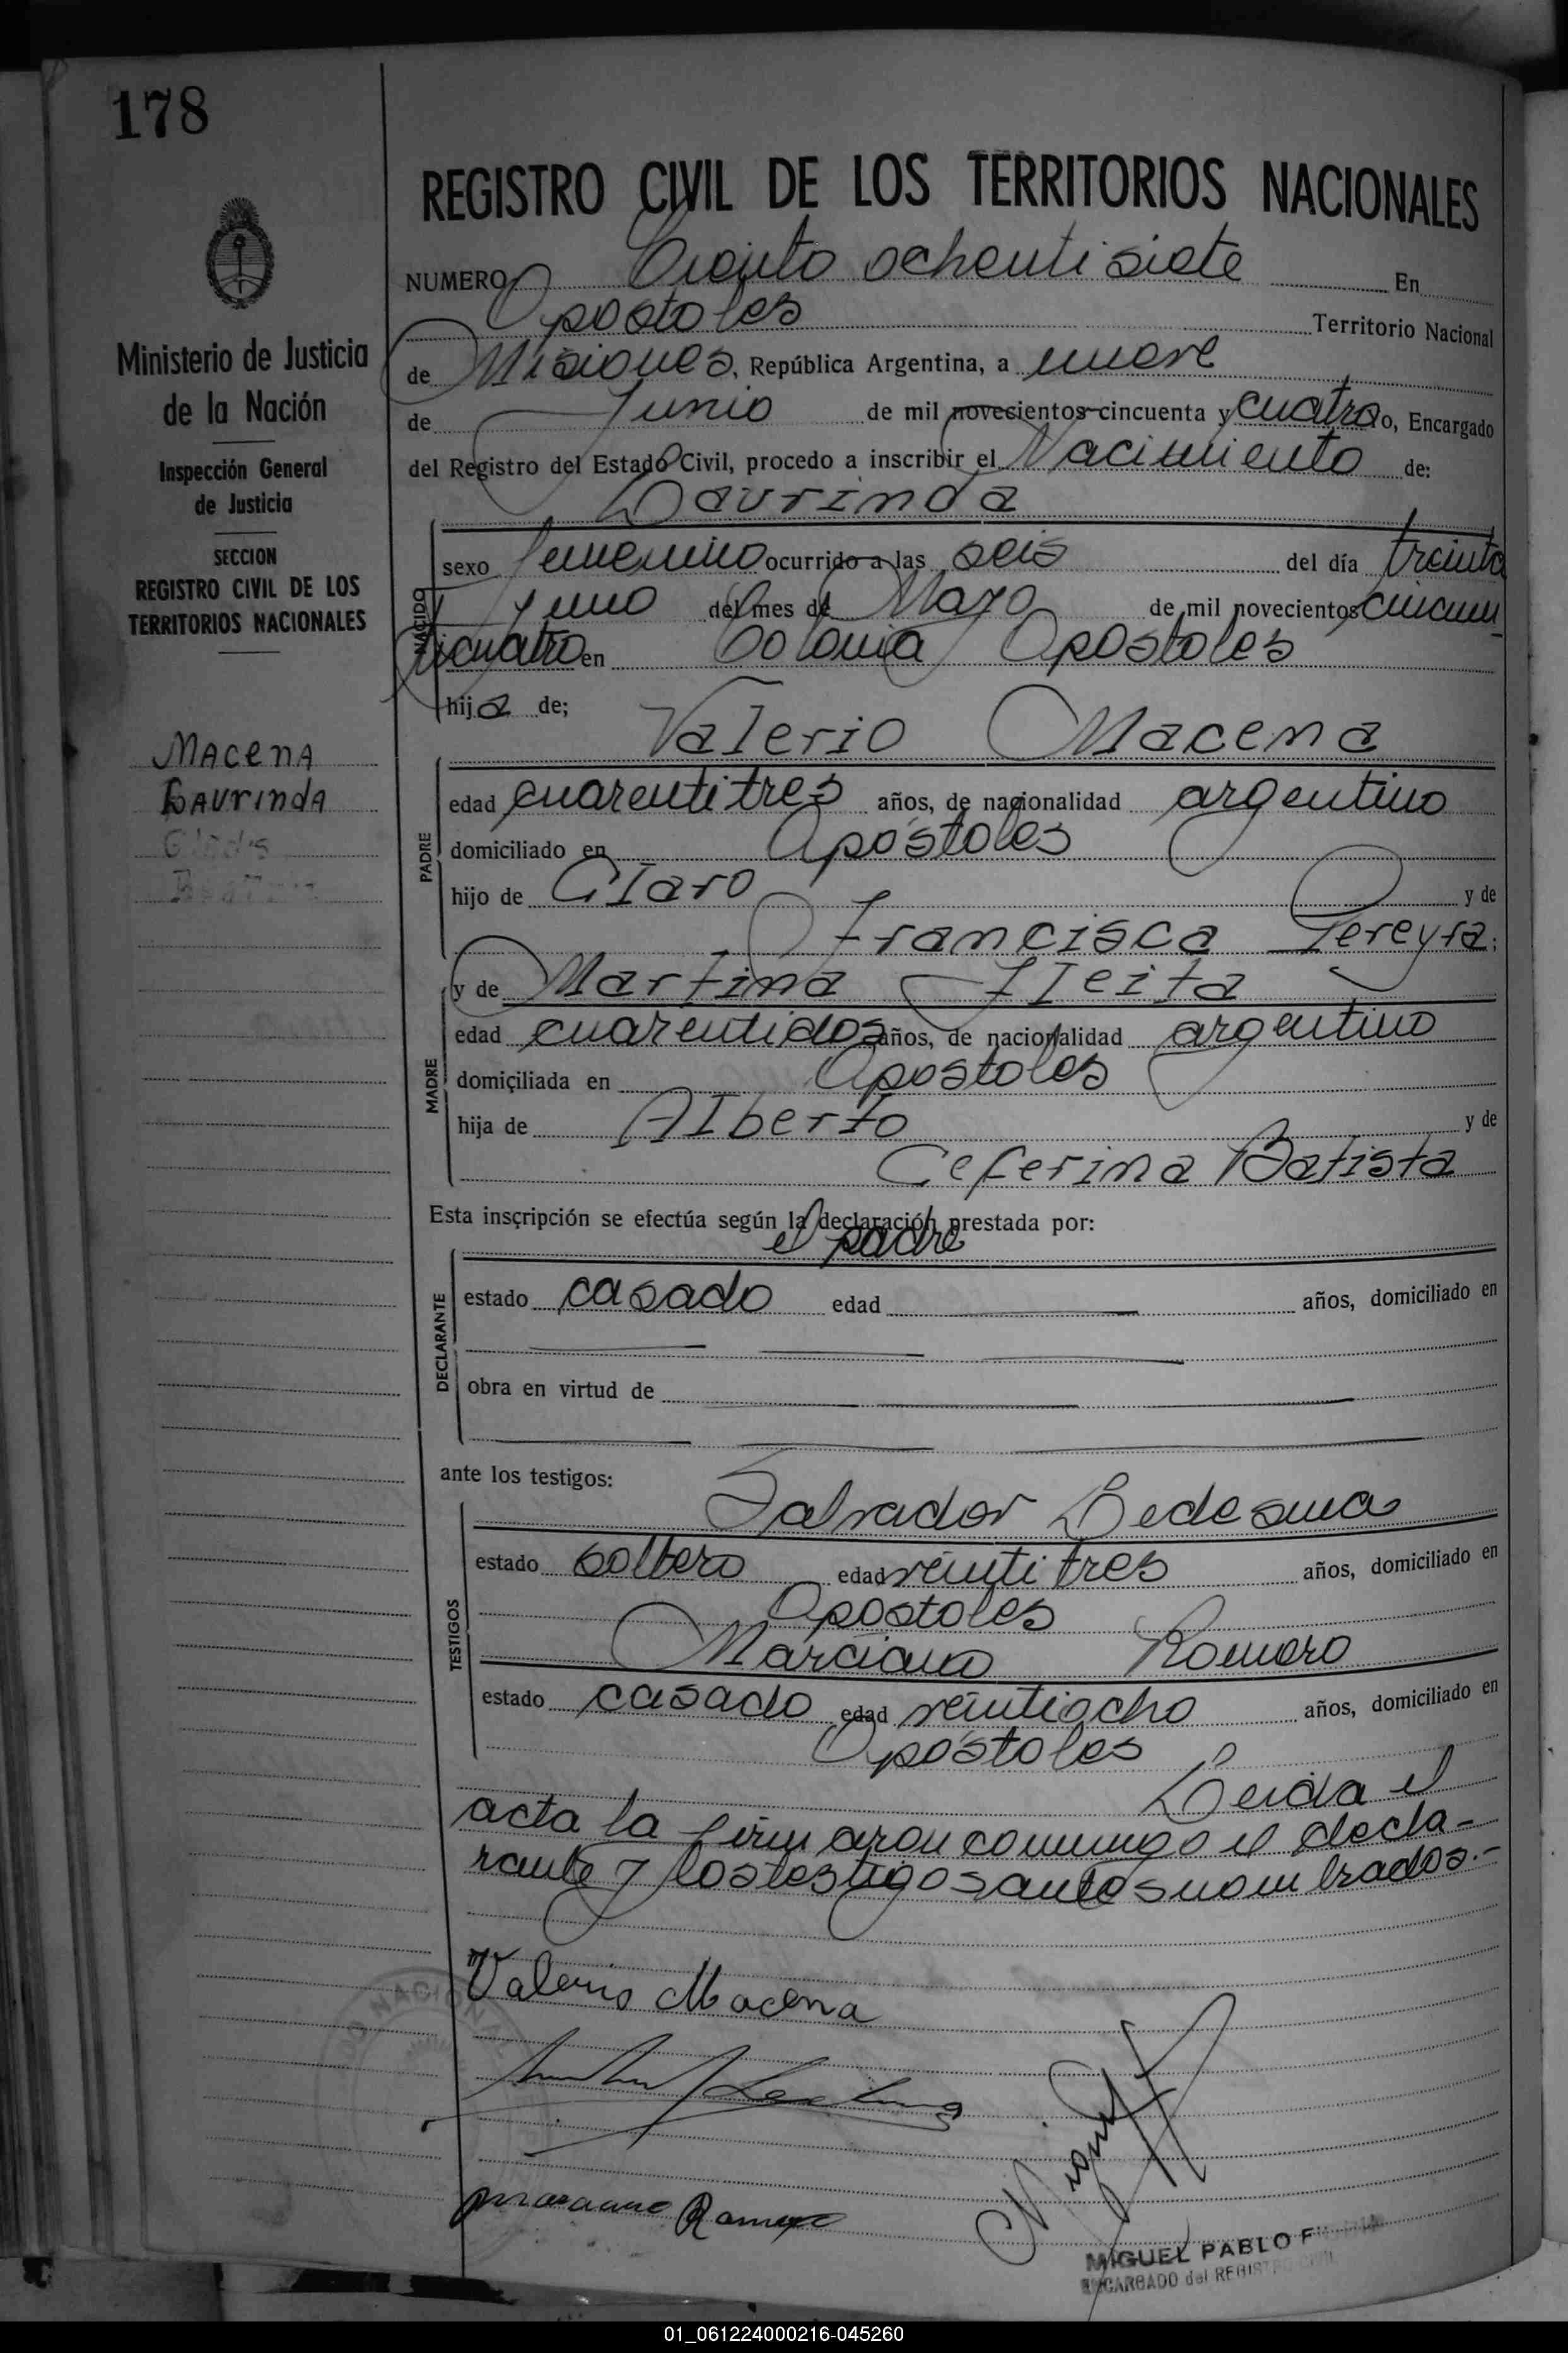 178
REGISTRO CIVIL DE LOS TERRITORIOS NACIONALES
NUMERO Ciento ochentisiete En
Apostoles Territorio Nacional
de Misiones, República Argentina, a nueve
de Junio de mil novecientos cincuenta y cuatro o, Encargado
del Registro del Estado Civil, procedo a inscribir el Nacimiento de:
Laurinda
sexo femenino ocurrido a las seis del día treinta
y uno del mes de Mayo de mil novecientos cincuen
ticuatro en Colonia Apostoles
NACIDO
hija de;
Valerio Macena
edad cuarentitres años, de nacionalidad argentino
domiciliado en Apostoles
hijo de Claro y de
Francisca Pereyra;
PADRE
y de Martina Fleita
edad cuarentidos años, de nacionalidad argentino
domiciliada en Apostoles
hija de Alberto y de
Ceferina Batista
MADRE
Esta inscripción se efectúa según la declaración prestada por:
el padre
estado casado edad años, domiciliado en
obra en virtud de
DECLARANTE
ante los testigos:
Salvador Ledesma
estado soltero edad veintitres años, domiciliado en
Apostoles
Marciano Romero
estado casado edad veintiocho años, domiciliado en
Apostoles
TESTIGOS
Leida el
acta la firmaron conmigo el decla-
rante y los testigos antes nombrados.-
Valerio Macena
Romero
MIGUEL PABLO
ENCARGADO del REGISTRO
Ministerio de Justicia
de la Nación
Inspección General
de Justicia
SECCION
REGISTRO CIVIL DE LOS
TERRITORIOS NACIONALES
MACENA
LAURINDA
01_061224000216-045260